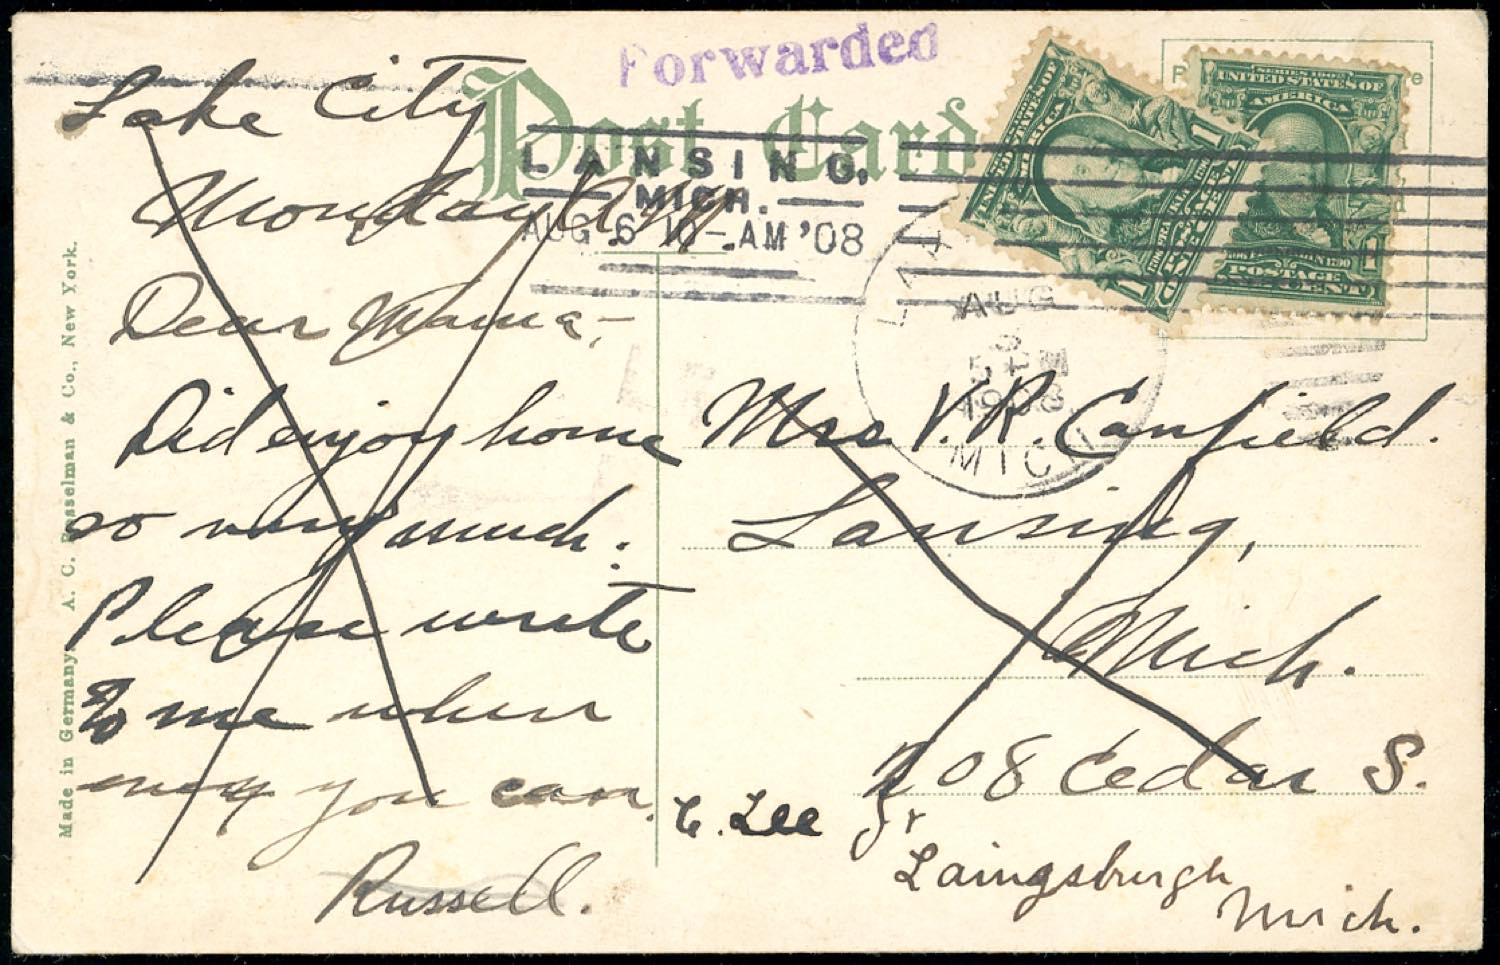 Forwarded
Post Card
LANSING,
MICH.
AUG 6 10-AM '08
SERIES 1902
UNITED STATES OF
AMERICA
POSTAGE
ONE CENT
1
1
AUG
5
1908
MICH
Lake City
Monday A.M.
Dear Mama,-
Did enjoy home
so very much.
Please write
to me when
ever you can.
Russell.
Mrs V. R. Canfield.
Lansing,
Mich.
708 Cedar S.
C. Lee Jr
Laingsburgh
Mich.
Made in Germany. A. C. Bosselman & Co., New York.